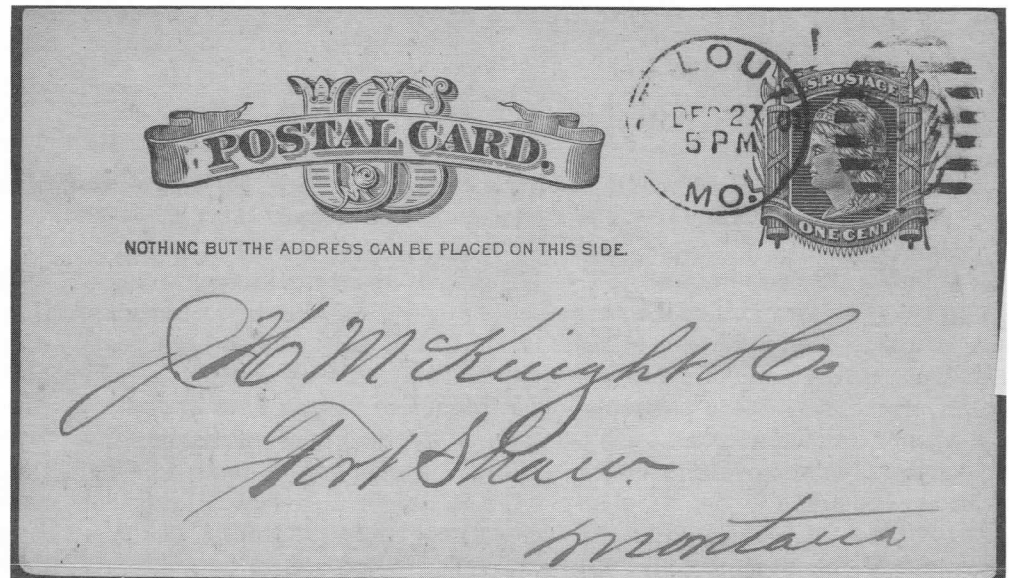 US
POSTAL CARD.
NOTHING BUT THE ADDRESS CAN BE PLACED ON THIS SIDE.
LOU
DEC 27
5 PM
MO.
U.S. POSTAGE
ONE CENT
J H McKnight & Co
Fort Shaw.
Montana